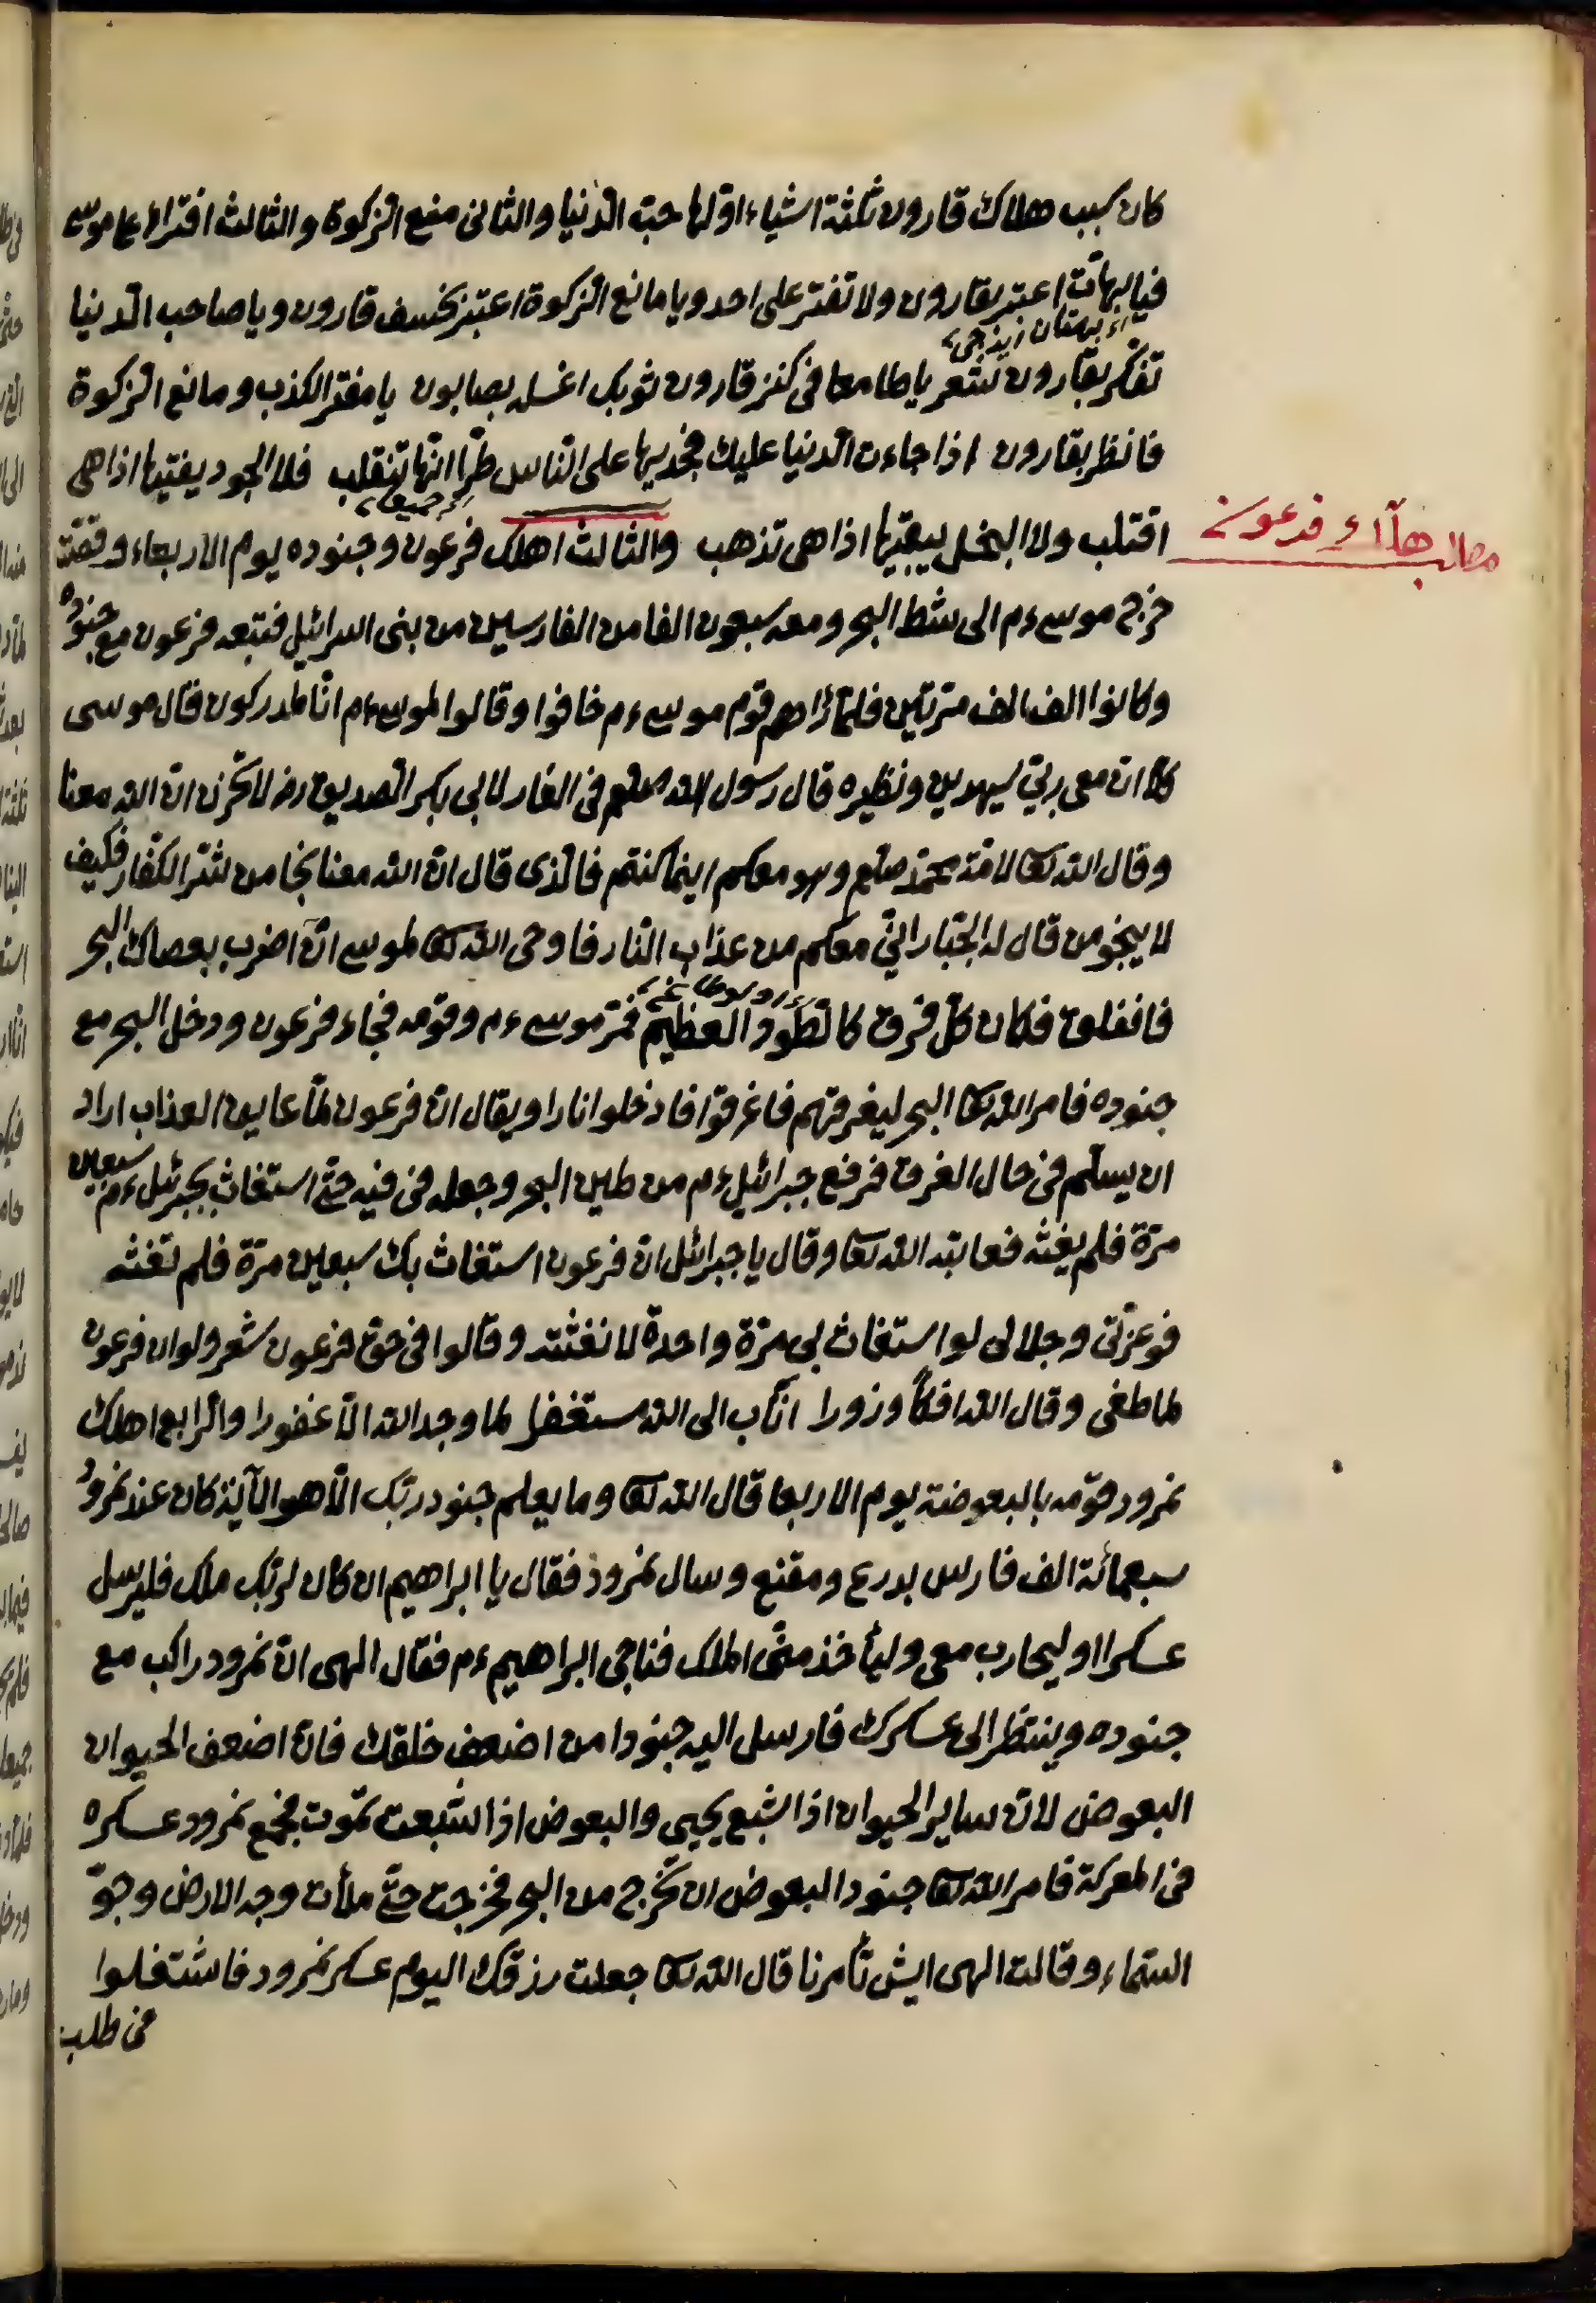 كان سبب هلاك قارون ثلثة اشياء اولها حبّ الدّنيا والثانى منع الزكوة والثالث افتراء على موسى
فيا بهات اعتبر بقارون ولا تفتر على احد ويا مانع الزكوة اعتبر بخسف قارون ويا صاحب الدنيا
تفكر بقارون شعر يا طامعا فى كنز قارون ثوبك اغسله بصابون يا مفتر الكذب ومانع الزكوة
فانظر بقارون اذا جاءت الدنيا عليك فجد بها على الناس طرّا انّها تنقلب فلا الجود يفنيها اذا هى
جميعا
اقتلب ولا البخل يبقيها اذا هى تذهب والثالث اهلك فرعون وجنوده يوم الاربعاء وقصّته
فرعون
خرج موسى ءم الى شط البحر ومعه سبعون الفا من الفارسين من بنى اسرائيل فتبعه فرعون مع جنوده
وكانوا الف الف مرّتين فلمّا رٰاهم قوم موسى ءم خافوا وقالوا لموسى ءم انّا لمدركون قال موسى
كلا ان معى ربّى سيهدين ونظيره قال رسول الله صلعم فى الغار لابى بكر الصديق رضـ لا تحزن ان الله معنا
وقال الله تعا لامّة محمّد صلعم وهو معكم اينما كنتم فالّذى قال انّ الله معنا نجا من شرّ الكفّار فكيف
لا ينجو من قال له الجبّار انّى معكم من عذاب النّار فاوحى الله تعا لموسى انّ اضرب بعصاك البحر
فانفلق فكان كلّ فرق كالطّود العظيم فمرّ موسى ءم وقومه فجاء فرعون ودخل البحر مع
جنوده فامر الله تعا البحر ليغرقهم فاغرقوا فادخلوا نارا ويقال انّ فرعون لمّا عاين العذاب اراد
ان يسلّم فى حال الغرق فرفع جبرائيل ءم من طين البحر وجعله فى فيه حتّى استغاث بجبرئيل ءم سبعين
مرّة فلم يغثه فعاتبه الله تعا وقال يا جبرائل انّ فرعون استغاث بك سبعين مرّة فلم تغثه
فوعزّتى وجلالى لو استغاث بى مرّة واحدة لاغثته وقالوا فى حق فرعون شعر ولو ان فرعون
لما طغى وقال الله افكاً وزورا انٰاب الى الله مستغفرا لما وجد الله الّا غفورا والرابع اهلك
نمرود وقومه بالبعوضة يوم الاربعا قال الله تعا وما يعلم جنود ربّك الّا هو الآية كان عند نمرود
سبعمائة الف فارس بدرع ومقنع وسال نمرود فقال يا ابراهيم ان كان لربّك ملك فليرسل
عسكرا وليحارب معى وليأخذ منّى الملك فناجى ابراهيم ءم فقال الهى انّ نمرود راكب مع
جنوده وينتظر الى عسكرك فارسل اليه جنودا من اضعف خلقك فانّ اضعف الحيوان
البعوض لانّ ساير الحيوان اذا شبع يحيى والبعوض اذا شبعت تموت فجمع نمرود عسكره
فى المعركة فامر الله تعا جنود البعوض ان تخرج من البحر فخرجت حتّى ملأت وجه الارض وجوّ
السّماء وقالت الهى ايش تأمرنا قال الله تعا جعلت رزقك اليوم عسكر نمرود فاشتغلوا
فى طلب